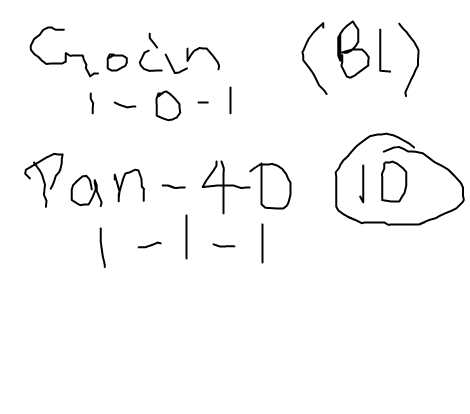 Gocin (BL)
1-0-1
Pan-4D 1D
1-1-1